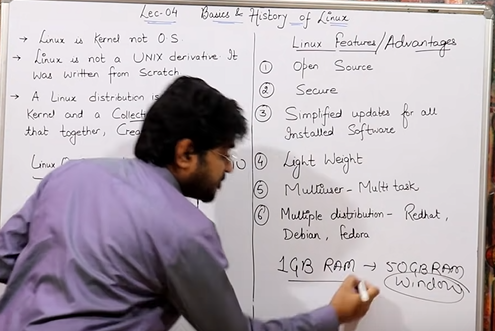 Lec-04 Basics & History of Linux
→ Linux is Kernel not O.S
→ Linux is not a UNIX derivative It
was written from Scratch
→ A Linux distribution is
Kernel and a Collect
that together, Crea
Linux
Linux Features/Advantages
① Open Source
② Secure
③ Simplified updates for all
Installed Software
④ Light Weight
⑤ Multiuser - Multi task
⑥ Multiple distribution - Redhat,
Debian, fedora
1GB RAM → 50GBRAM
Window